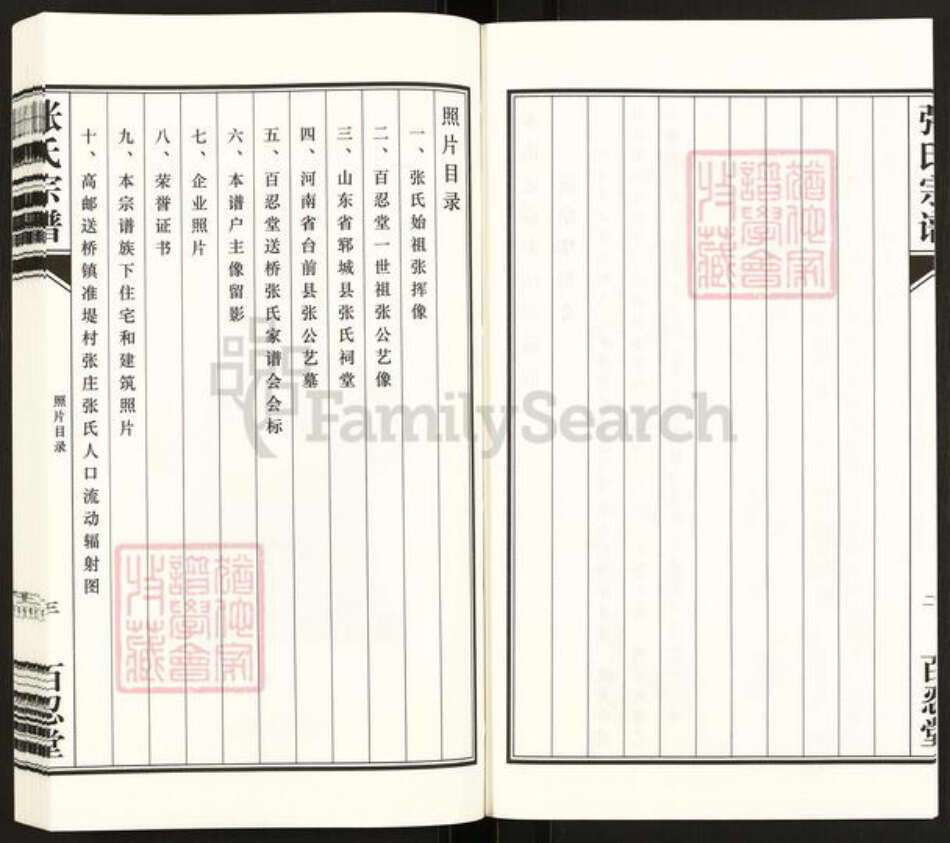 张氏宗谱
二
百忍堂
照片目录
一、张氏始祖张挥像
二、百忍堂一世祖张公艺像
三、山东省郓城县张氏祠堂
四、河南省台前县张公艺墓
五、百忍堂送桥张氏家谱会会标
六、本谱户主像留影
七、企业照片
八、荣誉证书
九、本宗谱族下住宅和建筑照片
十、高邮送桥镇准堤村张庄张氏人口流动辐射图
张氏宗谱
照片目录
三
百忍堂
FamilySearch